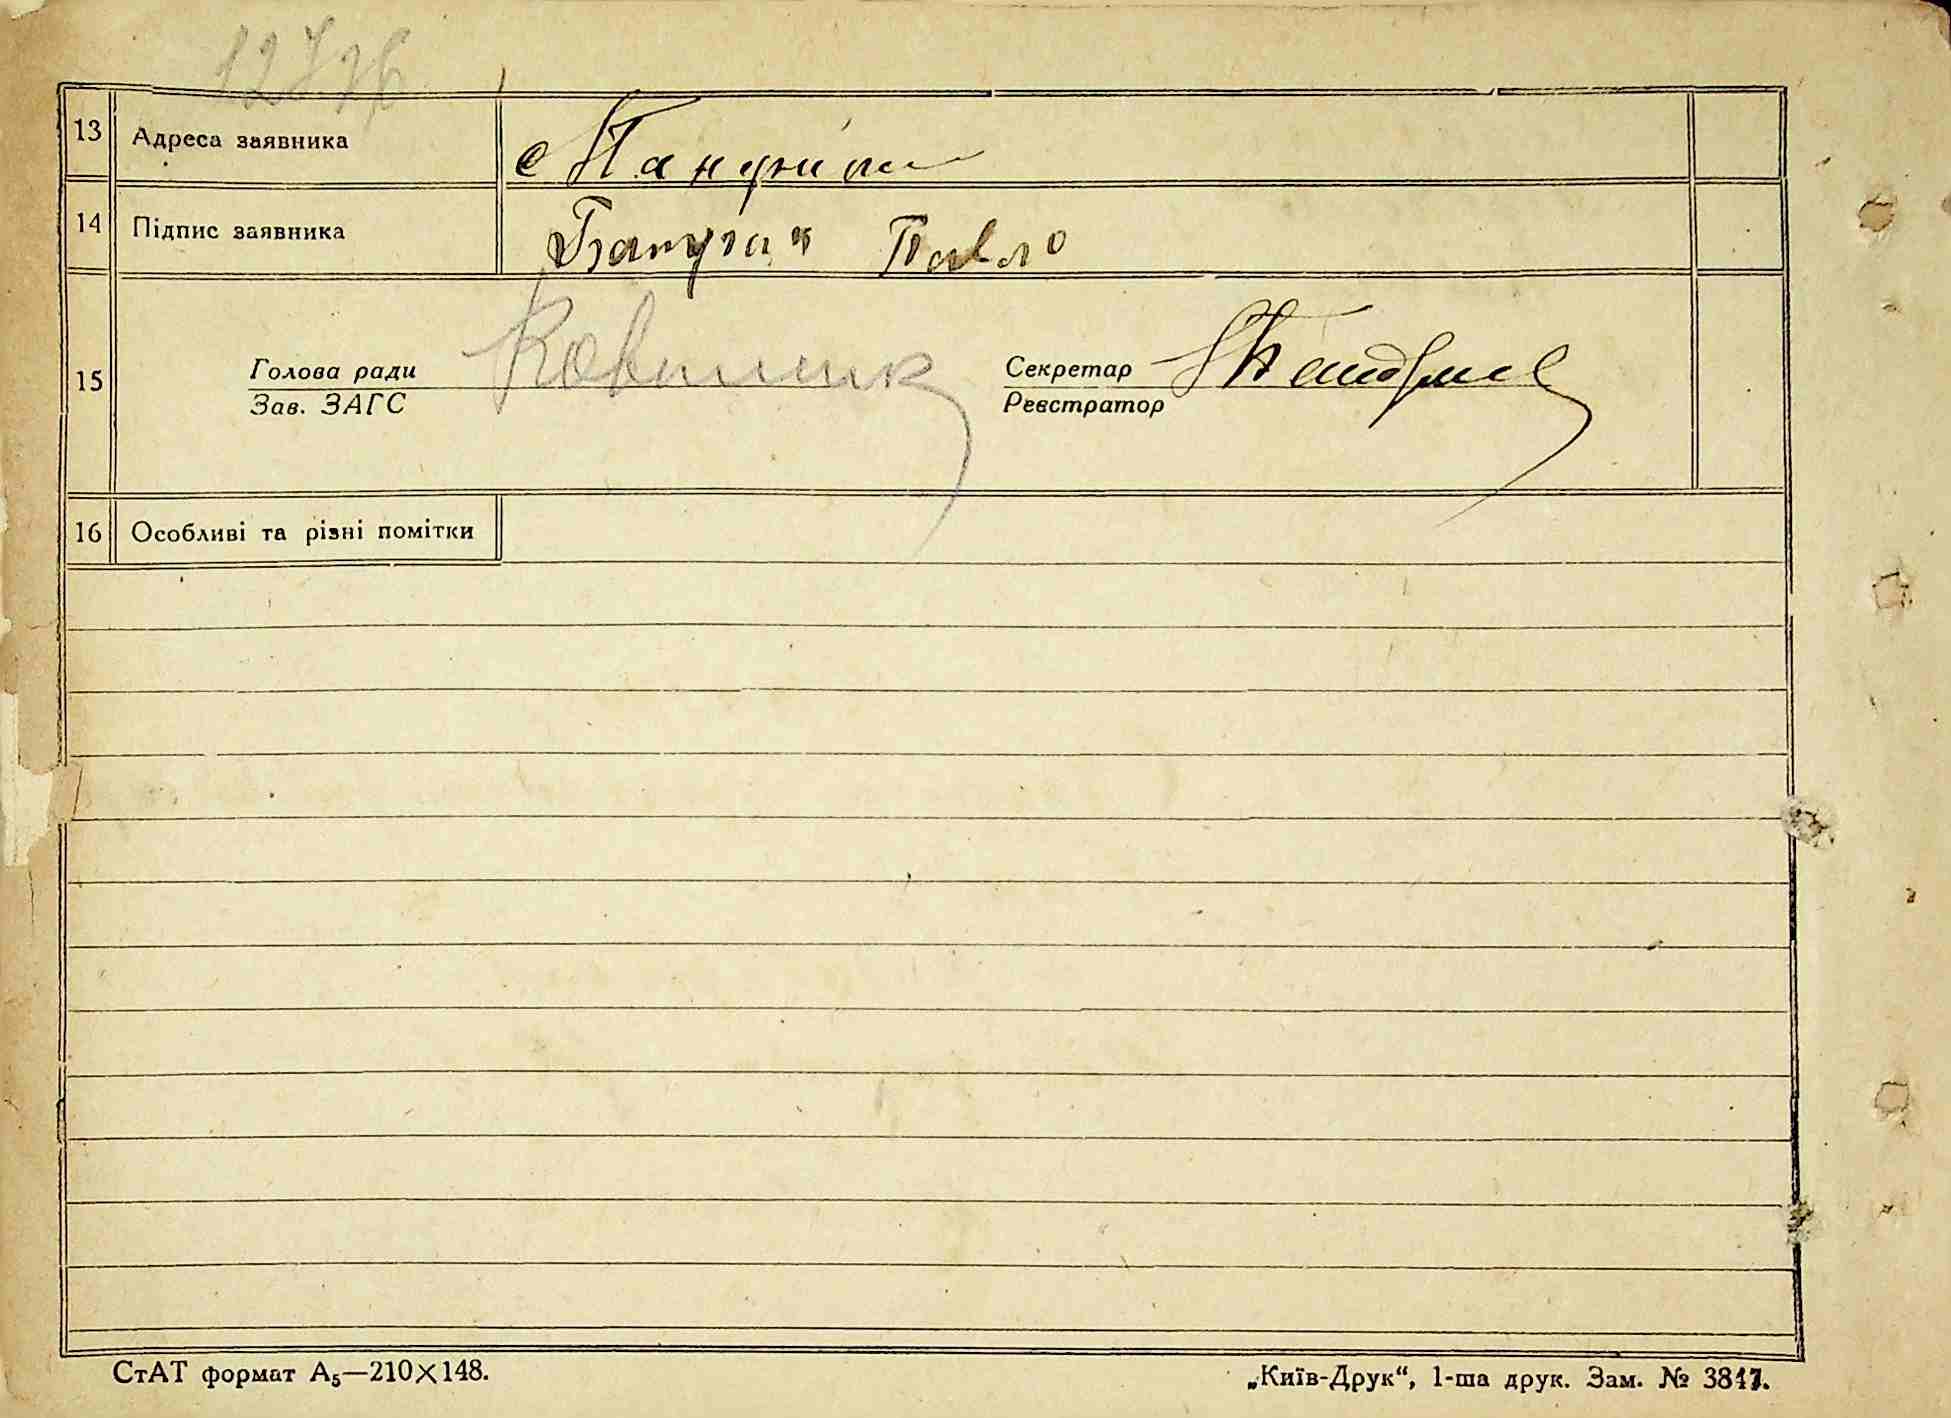 13 Адреса заявника с Панфили
14 Підпис заявника Павло
15 Голова ради Секретар
Зав. ЗАГС Реєстратор
16 Особливі та різні помітки
СтАТ формат А5—210×148. „Київ-Друк“, 1-ша друк. Зам. №